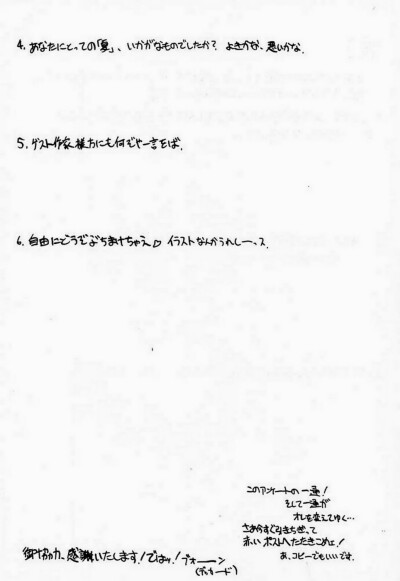 4. あなたにとっての「夏」、いかがなものでしたか? よきかな、悪いかな.
5. ゲスト作家様方にも何ぞや一言をば.
6. 自由にどうぞぶちまけちゃえ♡ イラストなんかうれしーっス.
このアンケートの一通!
そして一通が
オレを変えてゆく…
さあ今すぐ引きちぎって
赤いポストへたたきこめェ!
あ、コピーでもいいです.
御協力、感謝いたします! ではッ! ブォーーン